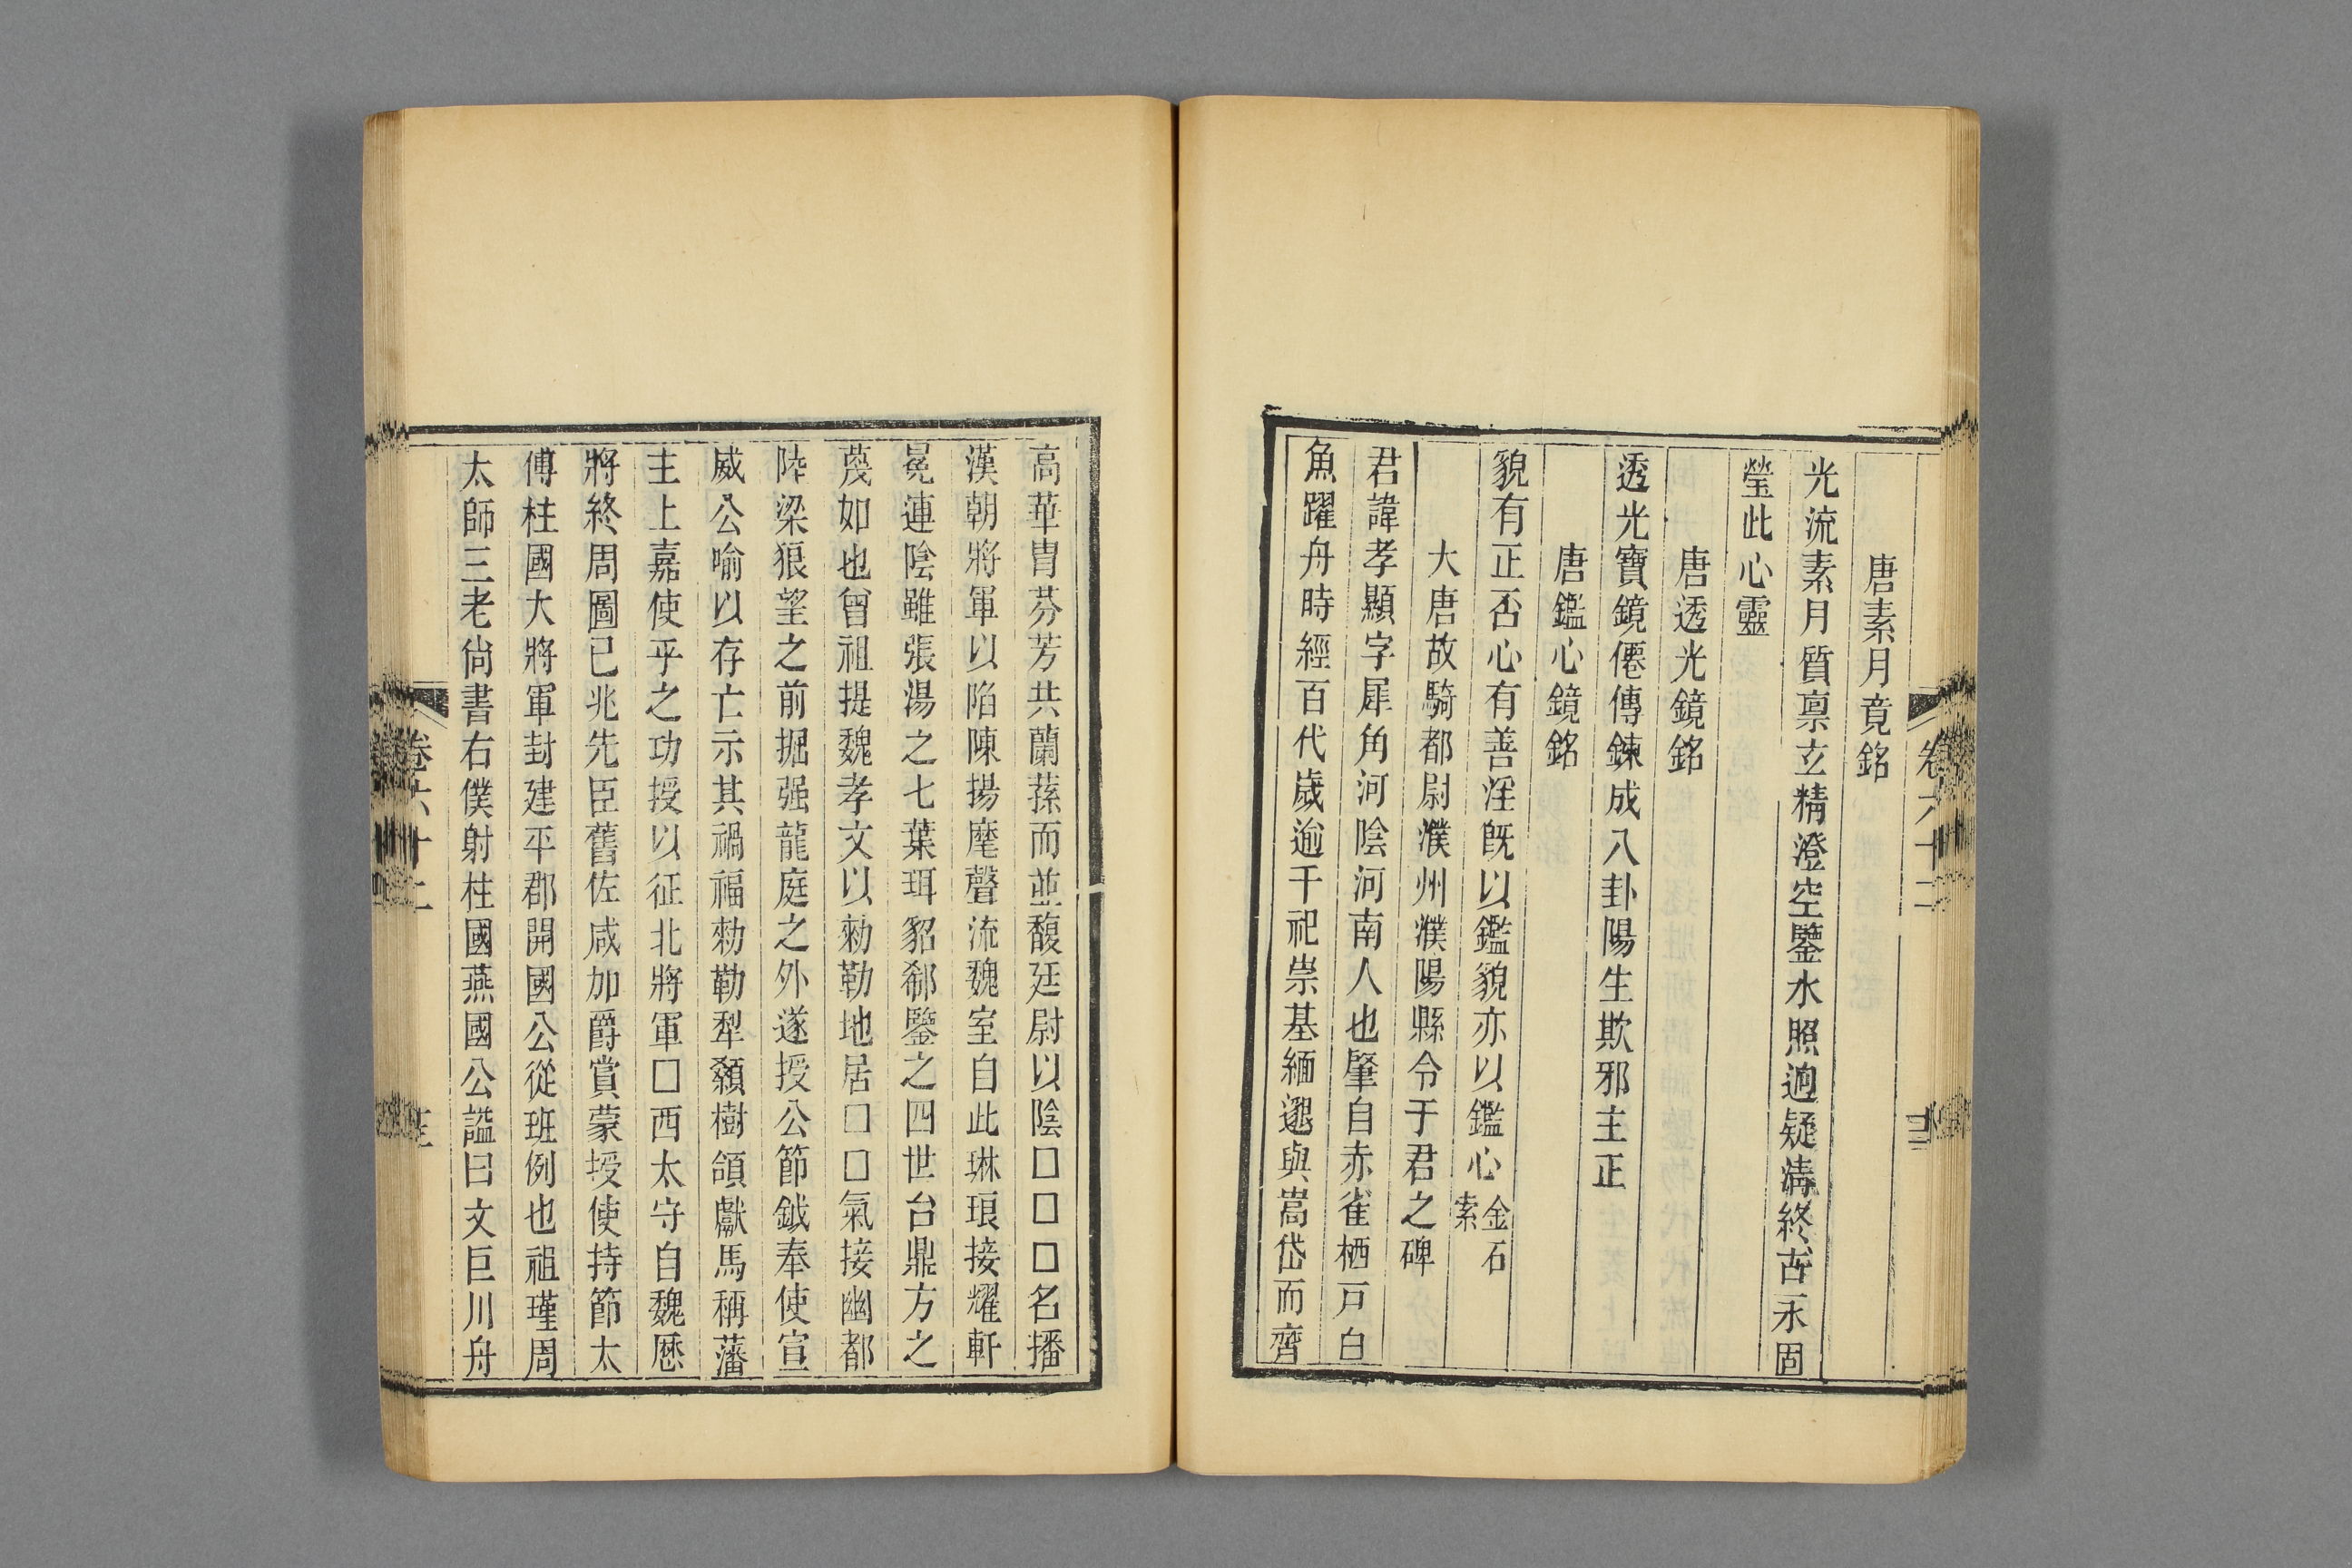 唐素月竟銘
光流素月質禀玄精澄空鑒水照迥疑清終古永固
瑩此心靈
唐透光鏡銘
透光寶鏡僊傳鍊成八卦陽生欺邪主正
唐鑑心鏡銘
貌有正否心有善淫既以鑑貌亦以鑑心金石索
大唐故騎都尉濮州濮陽縣令于君之碑
君諱孝顯字犀角河陰河南人也肇自赤雀栖戸白
魚躍舟時經百代歲逾千祀崇基緬邈與嵩岱而齊
高華胄芬芳共蘭蓀而並馥廷尉以陰□□□名播
漢朝將軍以陷陳揚麾聲流魏室自此琳琅接耀軒
冕連陰雖張湯之七葉珥貂郗鑒之四世台鼎方之
蔑如也曾祖提魏孝文以勑勒地居□□氣接幽都
陸梁狼望之前掘强龍庭之外遂授公節鉞奉使宣
威公喻以存亡示其禍福勑勒犁顙樹頜獻馬稱藩
主上嘉使乎之功授以征北將軍□西太守自魏懸
將終周圖已兆先臣舊佐咸加爵賞蒙授使持節太
傅柱國大將軍封建平郡開國公從班例也祖瑾周
太師三老尚書右僕射柱國燕國公謚曰文巨川舟
卷六十二